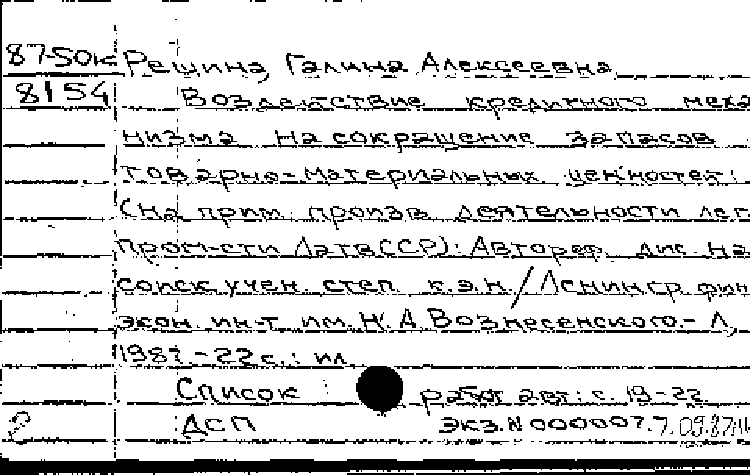 87-50к Решина, Галина Алексеевна
8154 Воздействие кредитного меха
низма на сокращение запасов
товарно-материальных ценностей:
(На прим. произв. деятельности лег.
пром-сти ЛатвССР): Автореф. дис. на
соиск. учен. степ. к.э.н. / Ленингр. фин
экон. ин-т им. Н.А. Вознесенского.- Л.,
1987.-22 с.: ил.
Список работ авт.: с. 19-22
2 ДСП Экз. N 000007. 7.09.87